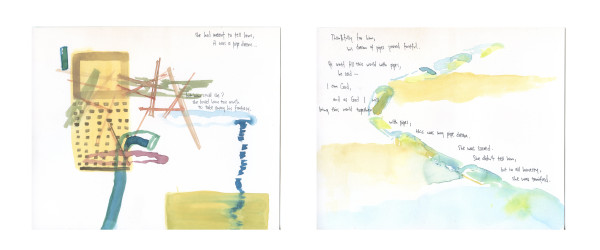 She had meant to tell him,
it was a pipe dream...
she tried
to
Thankfully for him,
his dream of pipes proved fruitful...
He would fill this world with pipes,
he said —
I am God,
and as God I
bring this world together
with pipes,
this was my pipe dream.
She was scared.
She didn't tell him,
but in all honesty,
she was terrified.